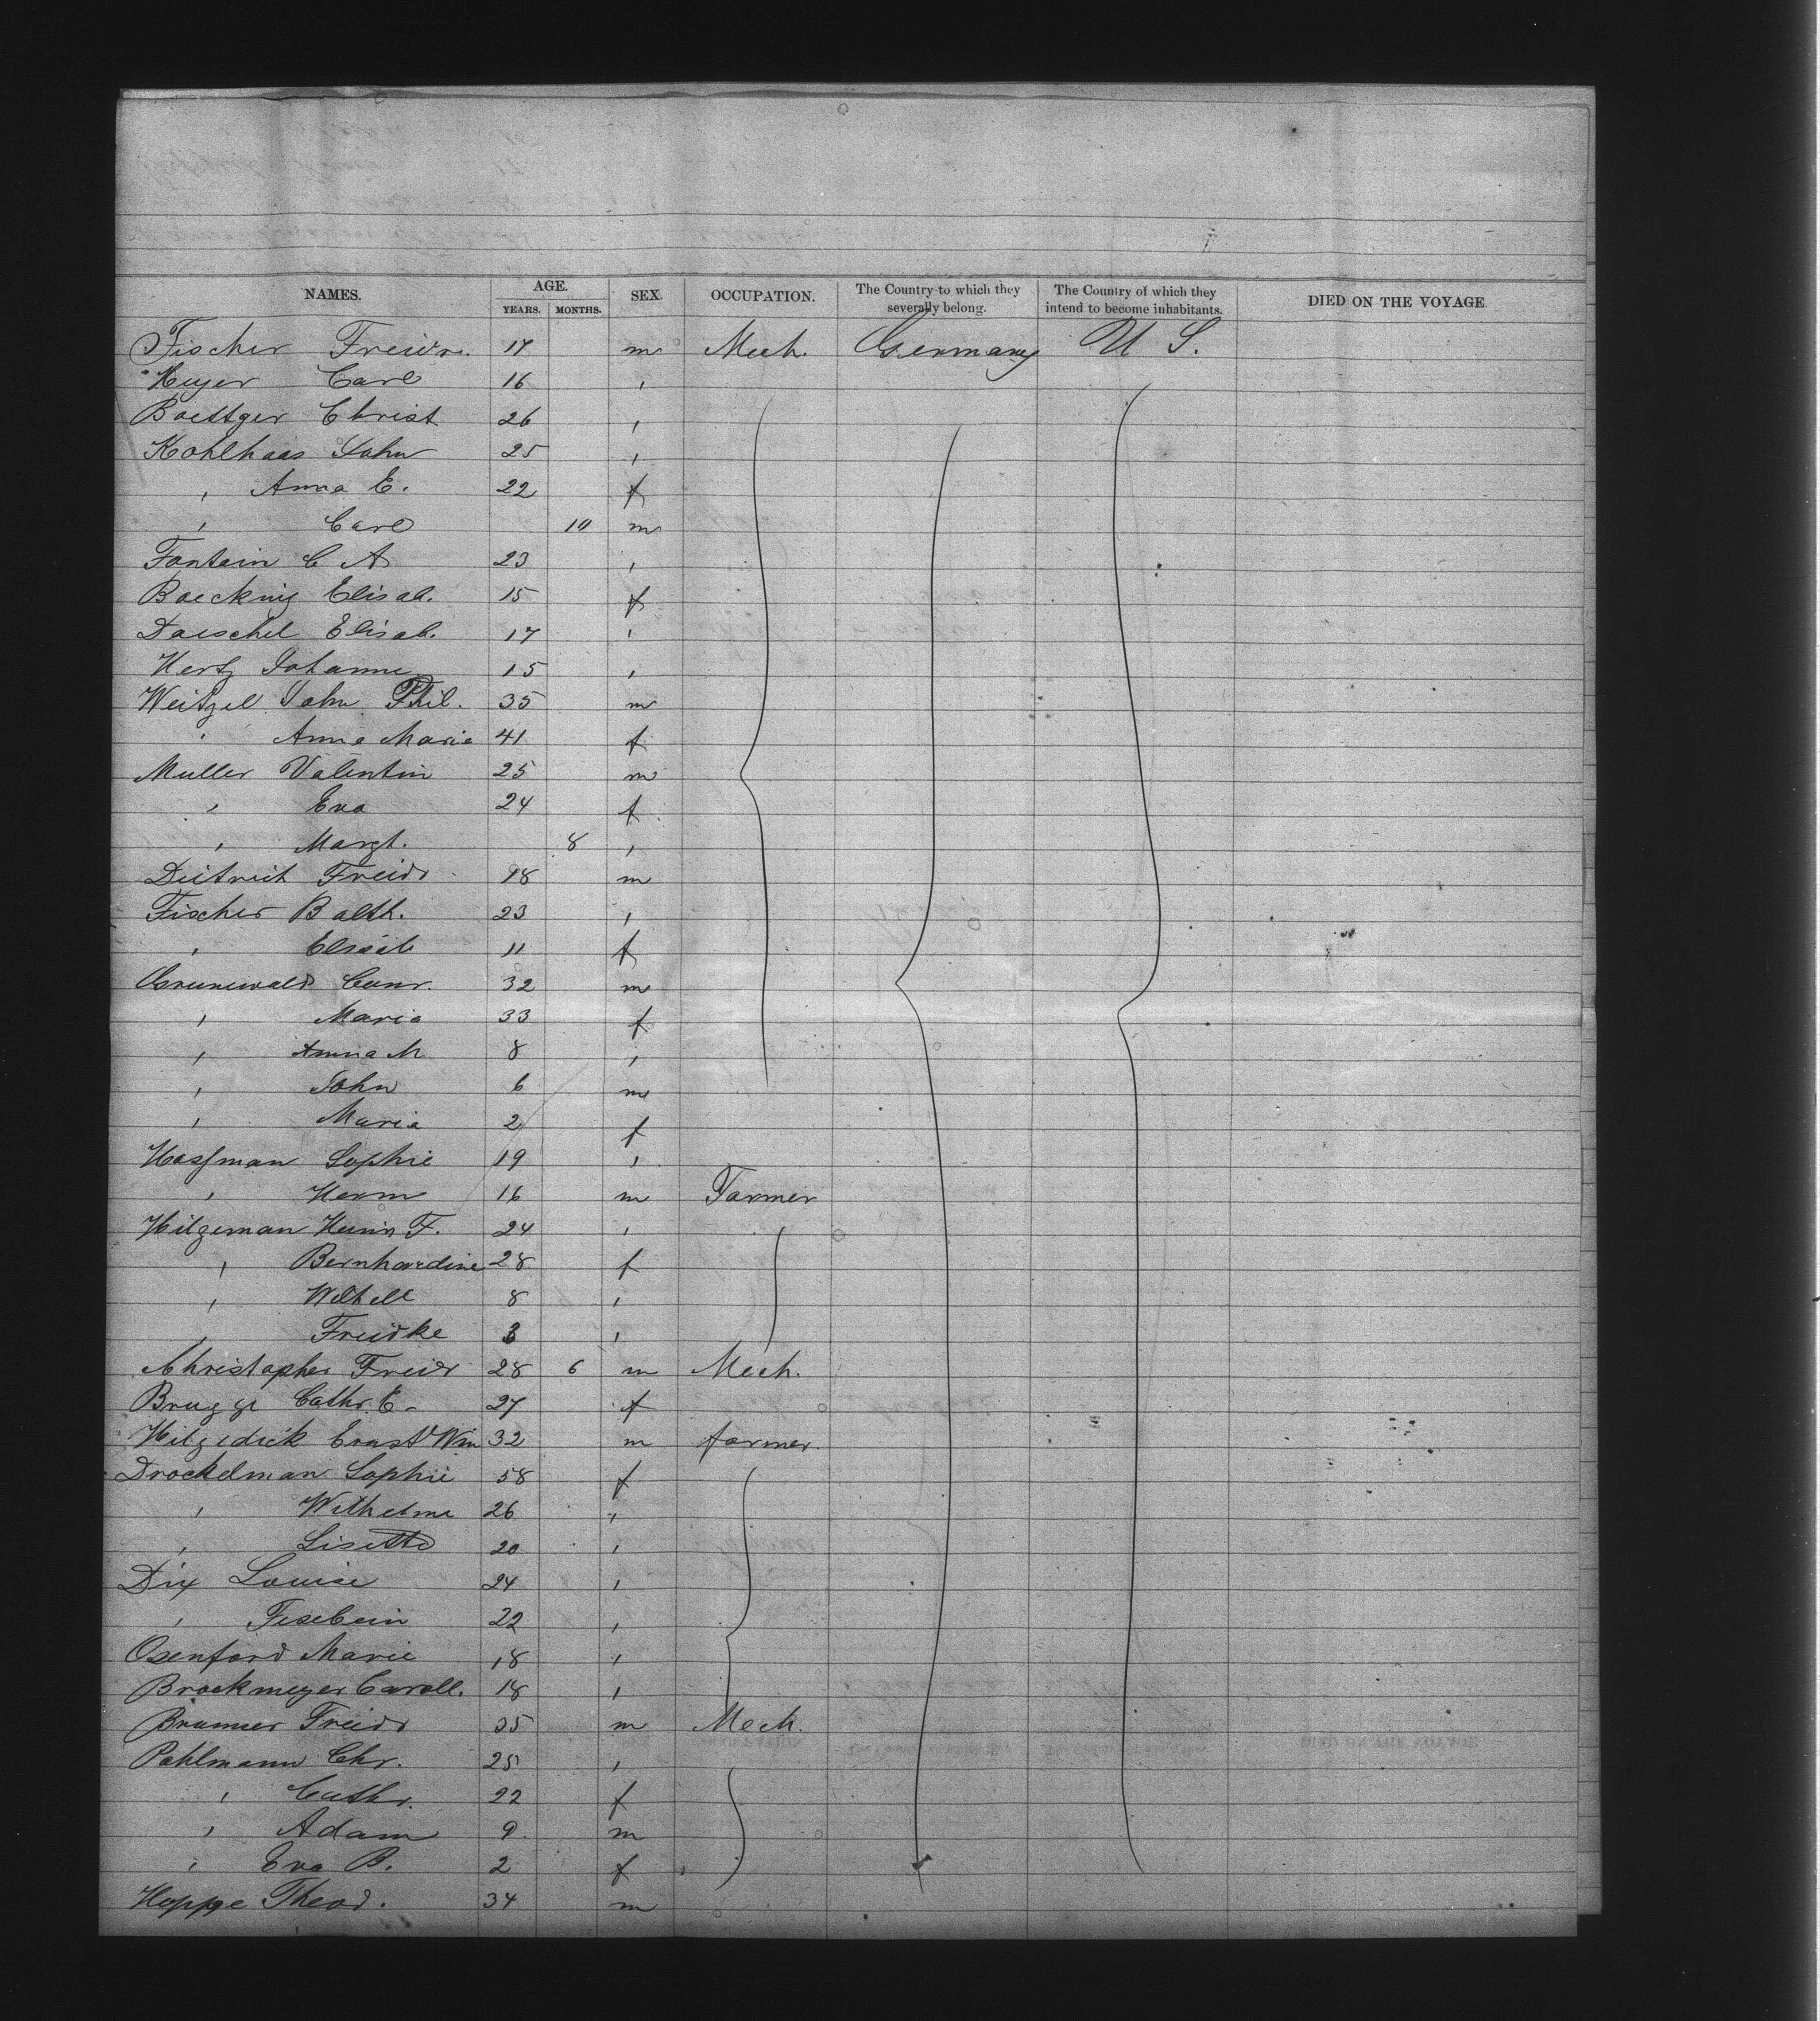 NAMES. AGE. YEARS. MONTHS. SEX. OCCUPATION. The Country to which they severally belong. The Country of which they intend to become inhabitants. DIED ON THE VOYAGE.
Fischer Freidr. 17 m Mech. Germany U S.
Meyer Carl 16 "
Boettger Christ 26 "
Kohlhaas John 25 "
" Anna E. 22 f
" Carl 10 m
Fontain C A 23 "
Boecking Elisab. 15 f
Daeschel Elisab. 17 "
Hertz Johanne 15 "
Weitzel John Phil. 35 m
" Anna Marie 41 f
Muller Valentin 25 m
" Eva 24 f
" Margt. 8 "
Deitrich Freidr 18 m
Fischer Balth. 23 "
" Elisab 11 f
Grunewald Conr. 32 m
" Maria 33 f
" Anna M 8 "
" John 6 m
" Maria 2 f
Hossman Sophie 19 "
" Herm 16 m Farmer
Hilgeman Heinr F. 24 "
" Bernhardine 28 f
" Wilhelle 8 "
" Freidke 3 "
Christopher Freidr 28 6 m Mech.
Brugge Cathr. E. 27 f
Hilgedick Ernst Wm 32 m farmer.
Drockelman Sophie 58 f
" Wilhelme 26 "
" Lisette 20 "
Dix Louise 24 "
" 22 "
Osenford Marie 18 "
Brockmeyer Caroll. 18 "
Brunner Freidr 35 m Mech.
Pohlmann Chr. 25 "
" Cathr. 22 f
" Adam 9 m
" Eva B. 2 f
Hoppe Theod. 34 m